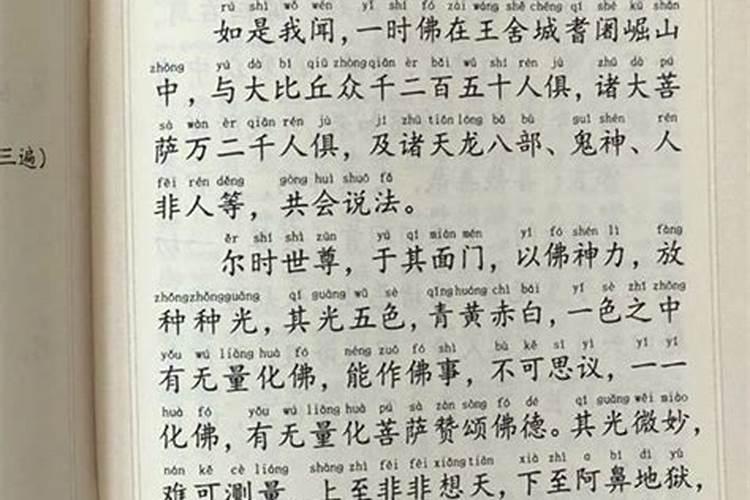 rú shì wǒ wén yī shí fó zài wáng shě chéng qí shé kū shān
如是我闻，一时佛在王舍城耆阇崛山
zhōng yǔ dà bǐ qiū zhòng qiān èr bǎi wǔ shí rén jù zhū dà pú
中，与大比丘众千二百五十人俱，诸大菩
sà wàn èr qiān rén jù jí zhū tiān lóng bā bù guǐ shén rén
萨万二千人俱，及诸天龙八部、鬼神、人
fēi rén děng gòng huì shuō fǎ
三遍）
非人等，共会说法。
ěr shí shì zūn yú qí miàn mén yǐ fó shén lì fàng
尔时世尊，于其面门，以佛神力，放
zhǒng zhǒng guāng qí guāng wǔ sè qīng huáng chì bái yī sè zhī zhōng
种种光，其光五色，青黄赤白，一色之中
yǒu wú liàng huà fó néng zuò fó shì bù kě sī yì yī yī
有无量化佛，能作佛事，不可思议，一一
huà fó yǒu wú liàng huà pú sà zàn sòng fó dé qí guāng wēi miào
化佛，有无量化菩萨赞颂佛德。其光微妙，
nán kě cè liáng shàng zhì fēi fēi xiǎng tiān xià zhì ā bí dì yù
难可测量，上至非非想天，下至阿鼻地狱，